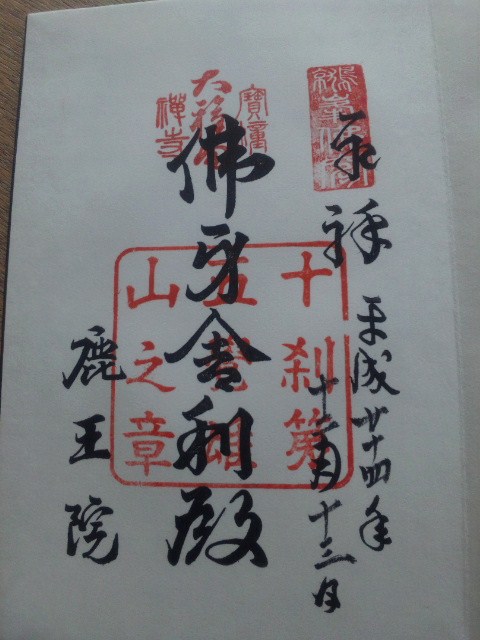 奉拝
平成廿十四年
十三日
佛牙舎利殿
鹿王院
十刹第
五覺雄
山之章
寶幢
大福田
禅寺